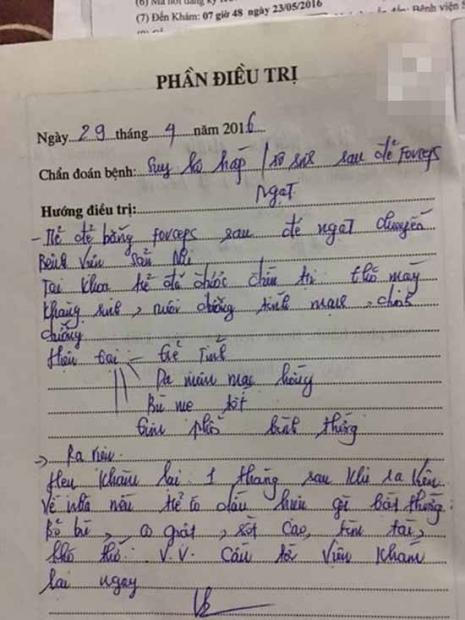 (7) Đến Khám: 07 giờ 48 ngày 23/05/2016
Bệnh viện S
PHẦN ĐIỀU TRỊ
Ngày 29 tháng 4 năm 2016
Chẩn đoán bệnh: Suy hô hấp / sơ sinh sau đẻ Forceps
ngạt
Hướng điều trị:
- Trẻ đẻ bằng forceps sau đẻ ngạt chuyển
Bệnh viện sản Nhi
Tại khoa trẻ đã được điều trị thở máy
kháng sinh, nuôi dưỡng tĩnh mạch, dinh
dưỡng
Hiện tại: - trẻ Tỉnh
Da niêm mạc hồng
Bú mẹ tốt
tim phổi bình thường
→ Ra viện
Hẹn khám lại 1 tháng sau khi ra viện
Về nhà nếu trẻ có dấu hiệu gì bất thường:
Bỏ bú, co giật, sốt cao, tím tái,
khó thở V.V. Cần tới viện khám
lại ngay